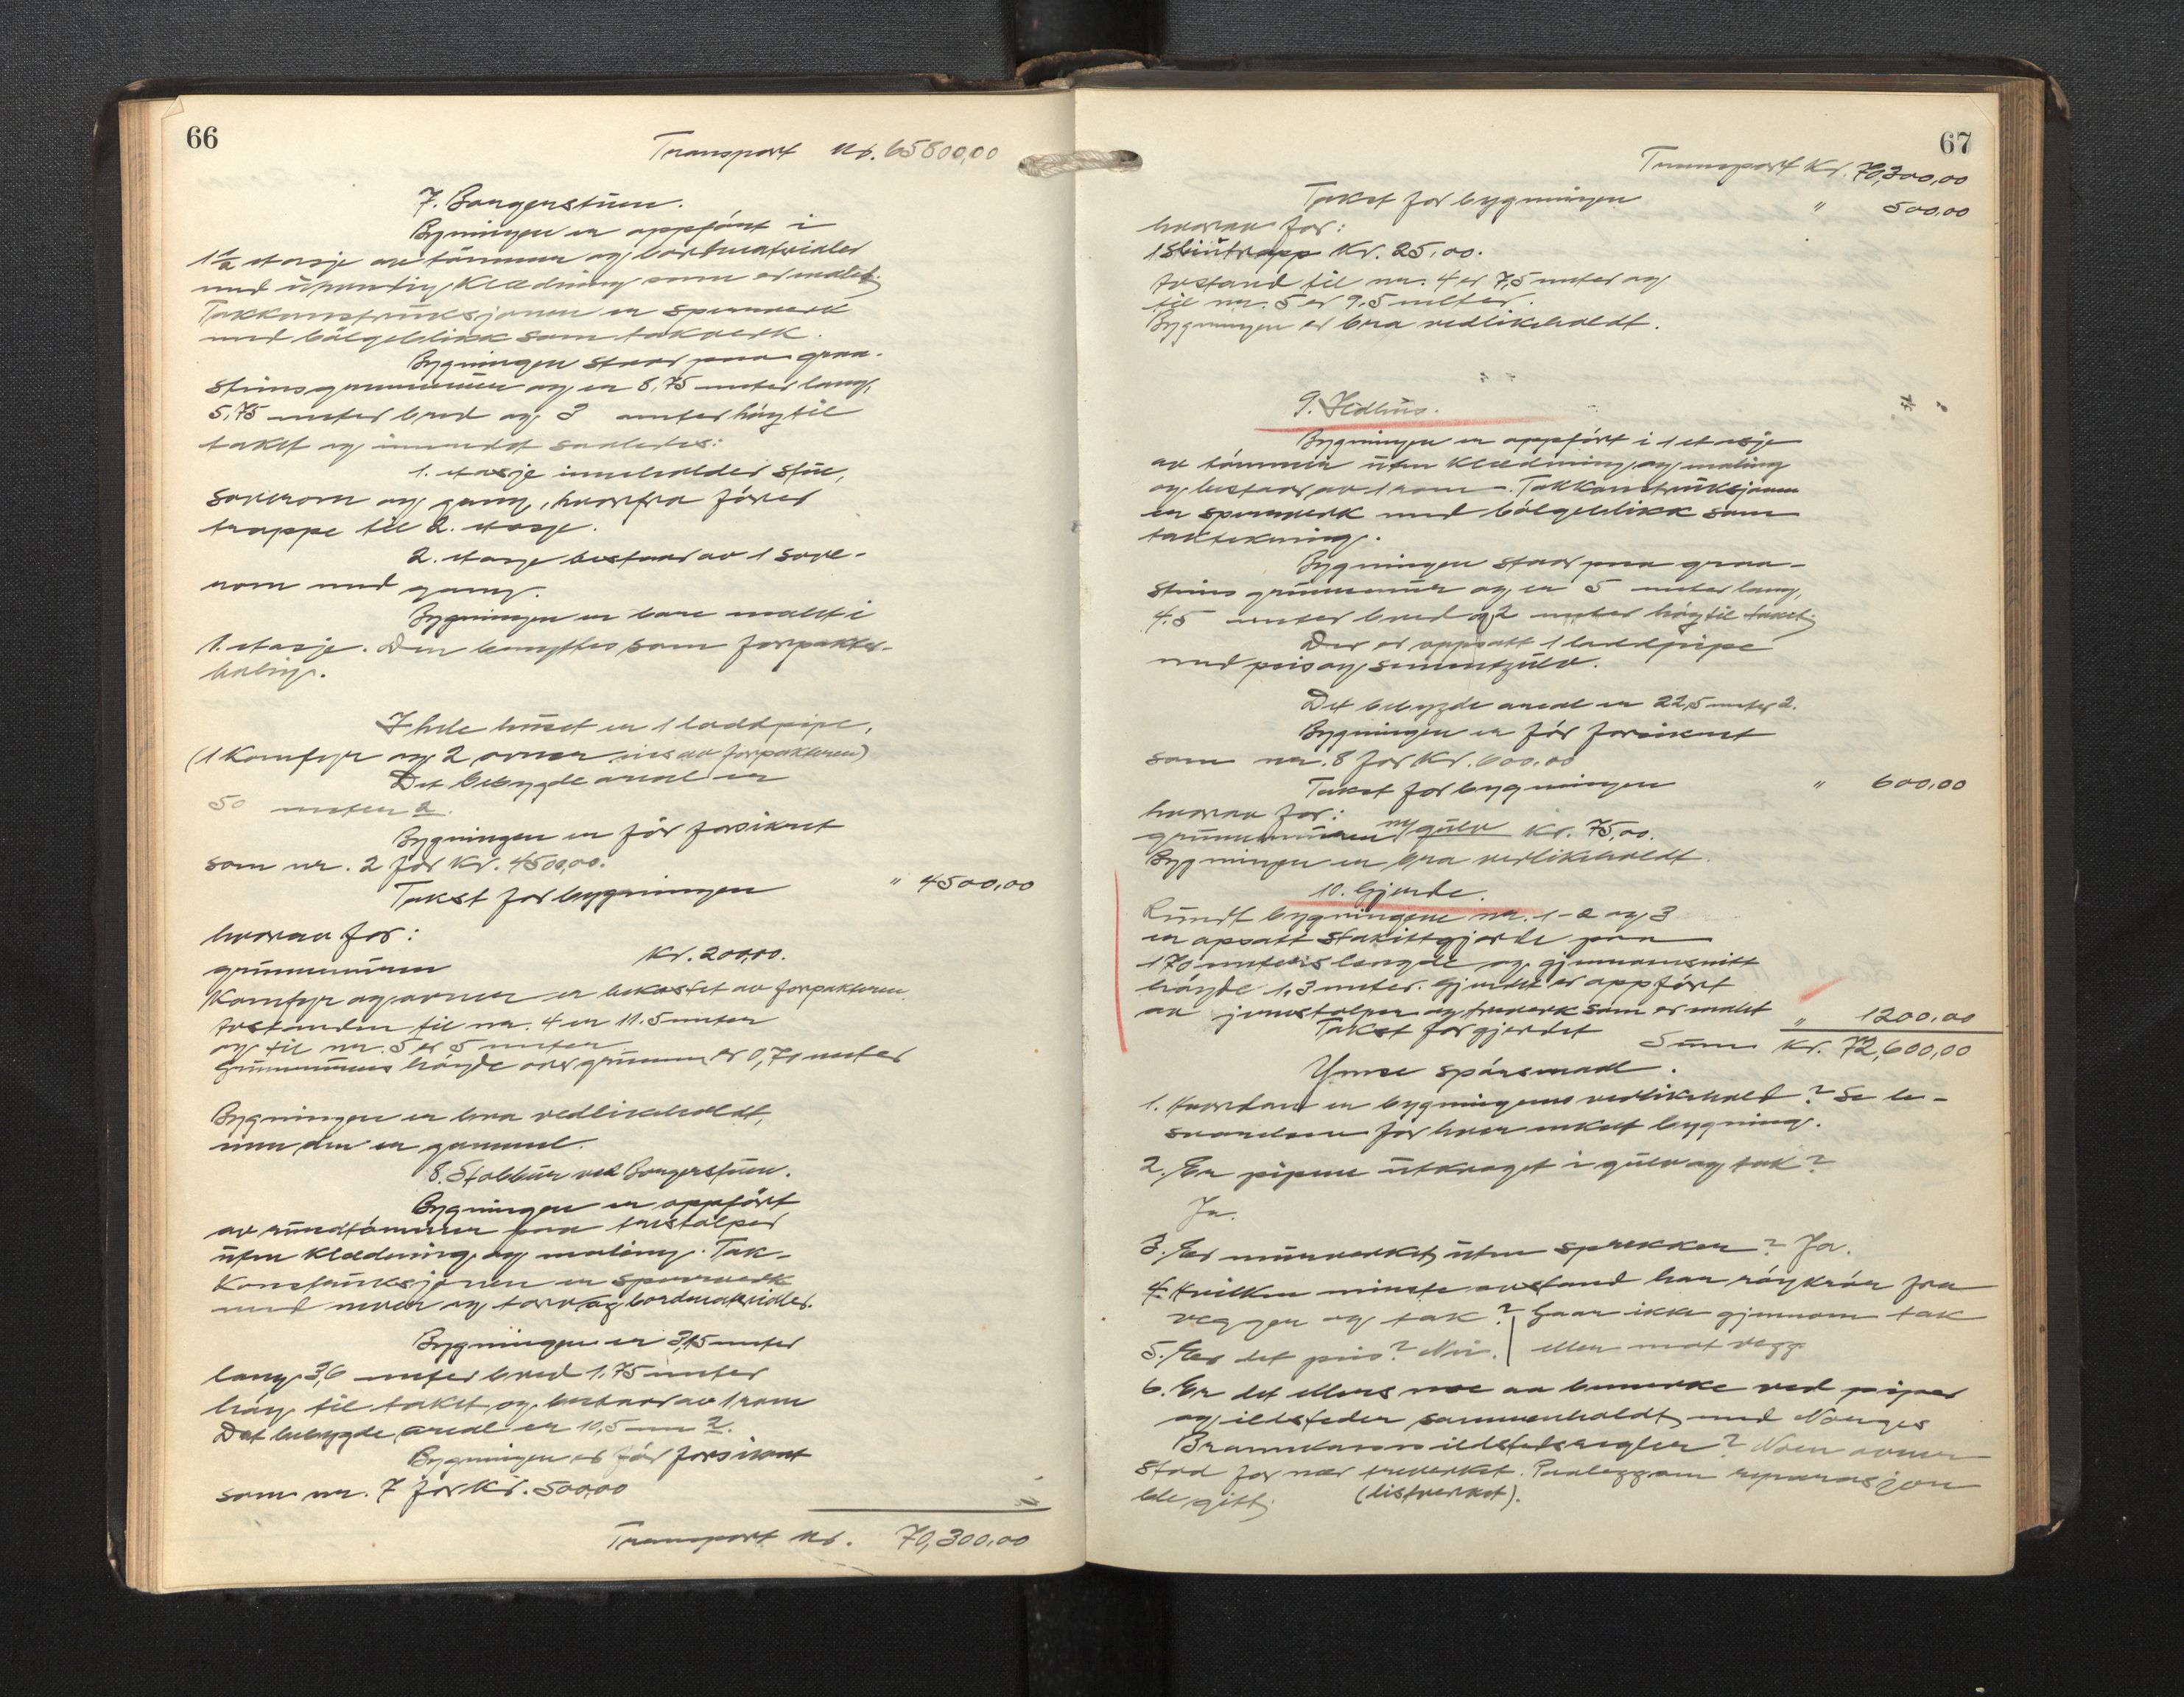 66
Transport Kr. 65800,00
7. Borgerstuen.
Bygningen er oppført i
1 1/2 etasje av tømmer og bordmaterialer
med utvendig Klædning som er malet.
Takkonstruksjonen er sperreverk
med bølgeblikk som takverk.
Bygningen staar paa graa-
stensgrunnmur og er 8,75 meter lang,
5,75 meter bred og 3 meter høg til
taket og innredet saaledes:
1. etasje inneholder stue,
soverom og gang, hvorfra fører
trappe til 2. etasje.
2. etasje bestaar av 1 sove-
rom med gang.
Bygningen er bare malt i
1. etasje. Den benyttes som forpakter-
bolig.
I hele huset er 1 loddpipe,
(1 Komfyr og 2 ovner eies av forpakteren)
Det bebygde areal er
50 meter 2.
Bygningen er før forsikret
som nr. 2 for Kr. 4500,00.
Takst for bygningen " 4500,00
hvorav for:
grunnmuren Kr. 200,00.
Komfyr og ovner er bekostet av forpakteren.
Avstanden til nr. 4 er 11.5 meter
og til nr. 5 er 5 meter
Grunnmurens høyde over grunnen er 0,70 meter
Bygningen er bra vedlikeholdt,
men den er gammel.
8. Stabbur ved Borgerstuen.
Bygningen er oppført
av rundtømmer paa trestolper
uten Klædning og maling. Tak-
Konstruksjonen er sperreverk
med never og torv og bordmaterialer.
Bygningen er 3,15 meter
lang 3,6 meter bred 1,75 meter
høg til taket og bestaar av 1 rom
Det bebygde areal er 10,5 m 2.
Bygningen er før forsikret
som nr. 7 for Kr. 500,00
Transport Kr. 70,300,00
67
Transport Kr. 70,300,00
Takst for bygningen " 500,00
hvorav for:
1 Kr. 25,00.
Avstand til nr. 4 er 7,5 meter og
til nr. 5 er 9,5 meter.
Bygningen er bra vedlikeholdt.
9. Ildhus.
Bygningen er oppført i 1 etasje
av tømmer uten Klædning og maling
og bestaar av 1 rom. Takkonstruksjonen
er sperreverk med bølgeblikk som
taktekning.
Bygningen staar paa graa-
stens grunnmur og er 5 meter lang,
4.5 meter bred og 2 meter høg til taket.
Der er oppsatt 1 loddpipe
med peis og sementgulv.
Det bebygde areal er 22,5 meter 2.
Bygningen er før forsikret
som nr. 8 for Kr. 600,00
Takst for bygningen " 600,00
hvorav for:
grunnmuren og gulv Kr. 75,00.
Bygningen er bra vedlikeholdt.
10. Gjerde.
Rundt bygningene nr. 1-2 og 3
er opsatt stakittgjerde paa
170 meters lengde og gjennomsnitt
høyde 1,3 meter. Gjerdet er oppført
av jernstolper og treverk som er malet
Takst for gjerdet " 1200,00
Sum Kr. 72,600,00
Ymse spørsmaal.
1. Hvordan er bygningenes vedlikehold? Se be-
svarelsen for hver enkelt bygning.
2. Er pipene utkraget i gulv og tak?
Ja.
3. Er murverket uten sprekker? Ja.
4. Hvilken minste avstand har røykrør fra
vegger og tak? Gaar ikke gjennom tak
5. Er det peis? Nei. eller mot vegg
6. Er det ellers noe aa bemerke ved piper
og ildsteder sammenholdt med Norges
Brannkasses ildstedsregler? Noen ovner
stod for nær treverket. Paalegg om reparasjon
ble gitt. (listverket).